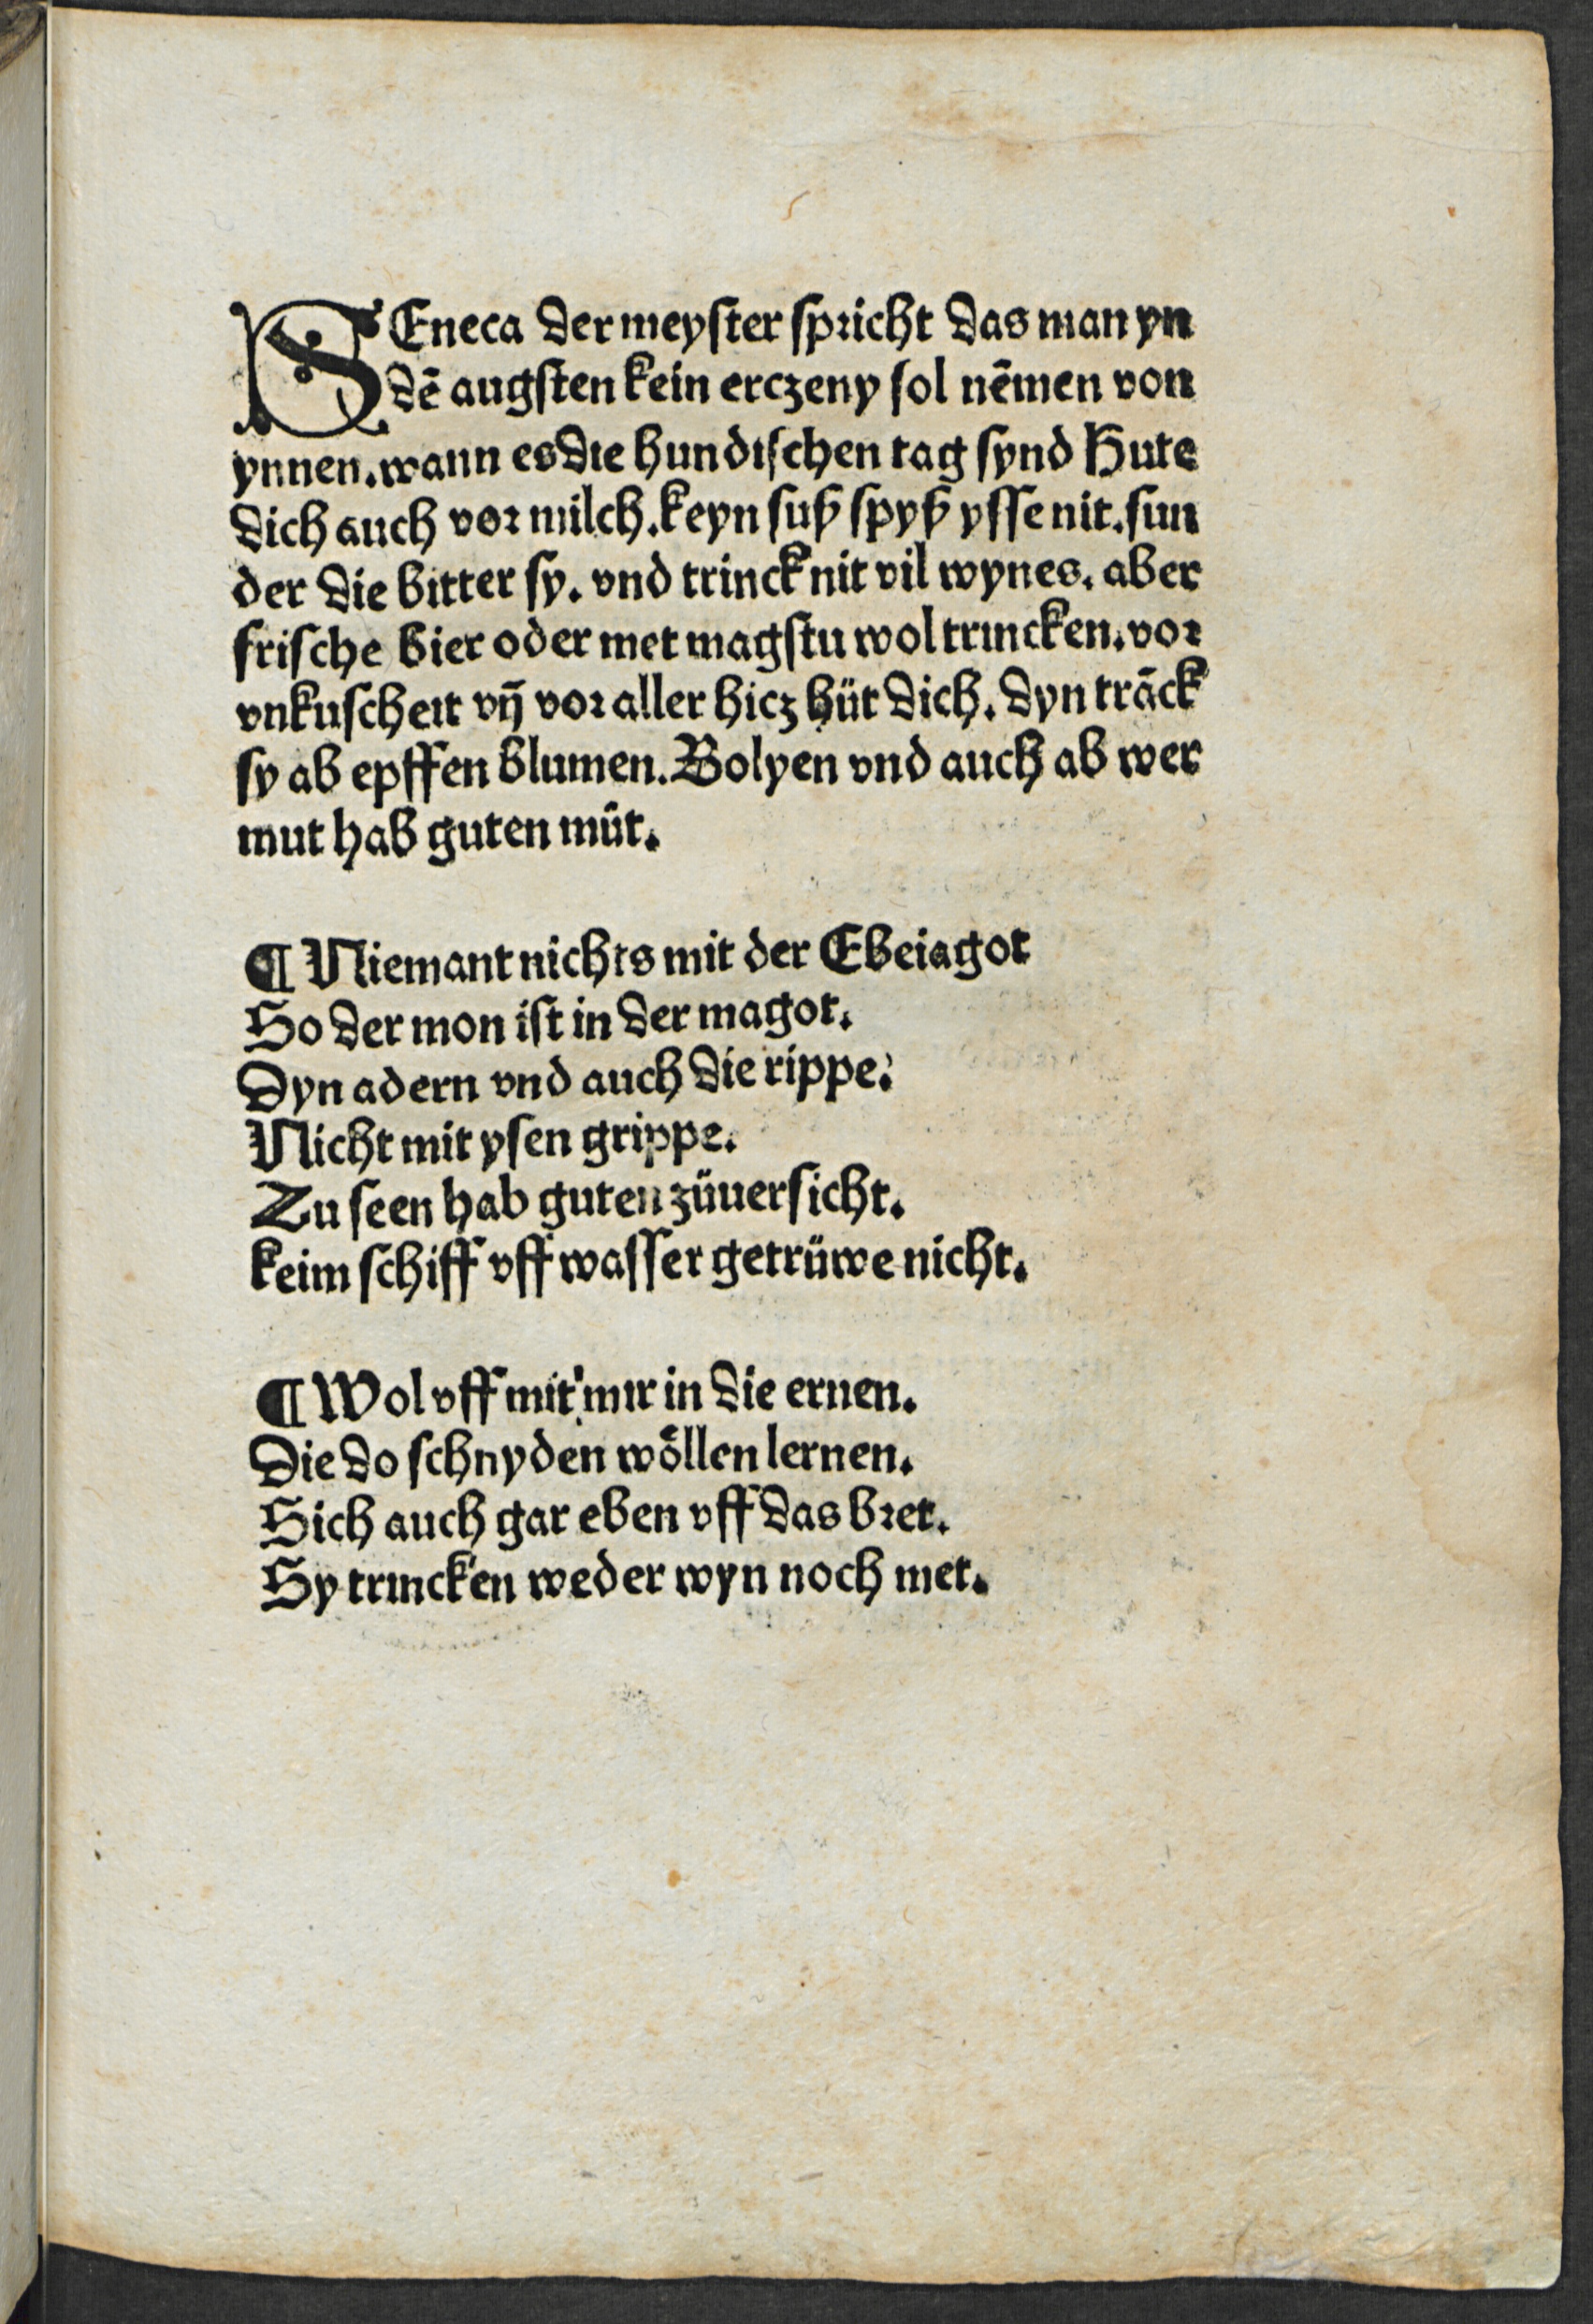 SEneca der meyster spricht das man yn
dē augsten kein erczeny sol nēmen von
ynnen. wann es die hundischen tag synd Hute
dich auch vor milch. keyn suß spyß ysse nit. sun
der die bitter sy. vnd trinck nit vil wynes. aber
frische bier oder met magstu wol trincken. vor
vnkuscheit vn̄ vor aller hicz hüt dich. dyn trāck
sy ab epffen blumen. Bolyen vnd auch ab wer
mut hab guten müt.
¶ Niemant nichts mit der Ebeiagot
So der mon ist in der magot.
Dyn adern vnd auch die rippe.
Nicht mit ysen grippe.
Zu seen hab guten züuersicht.
keim schiff vff wasser getrüwe nicht.
¶ Wol vff mit mir in die ernen.
Die do schnyden wöllen lernen.
Sich auch gar eben vff das bret.
Sy trincken weder wyn noch met.